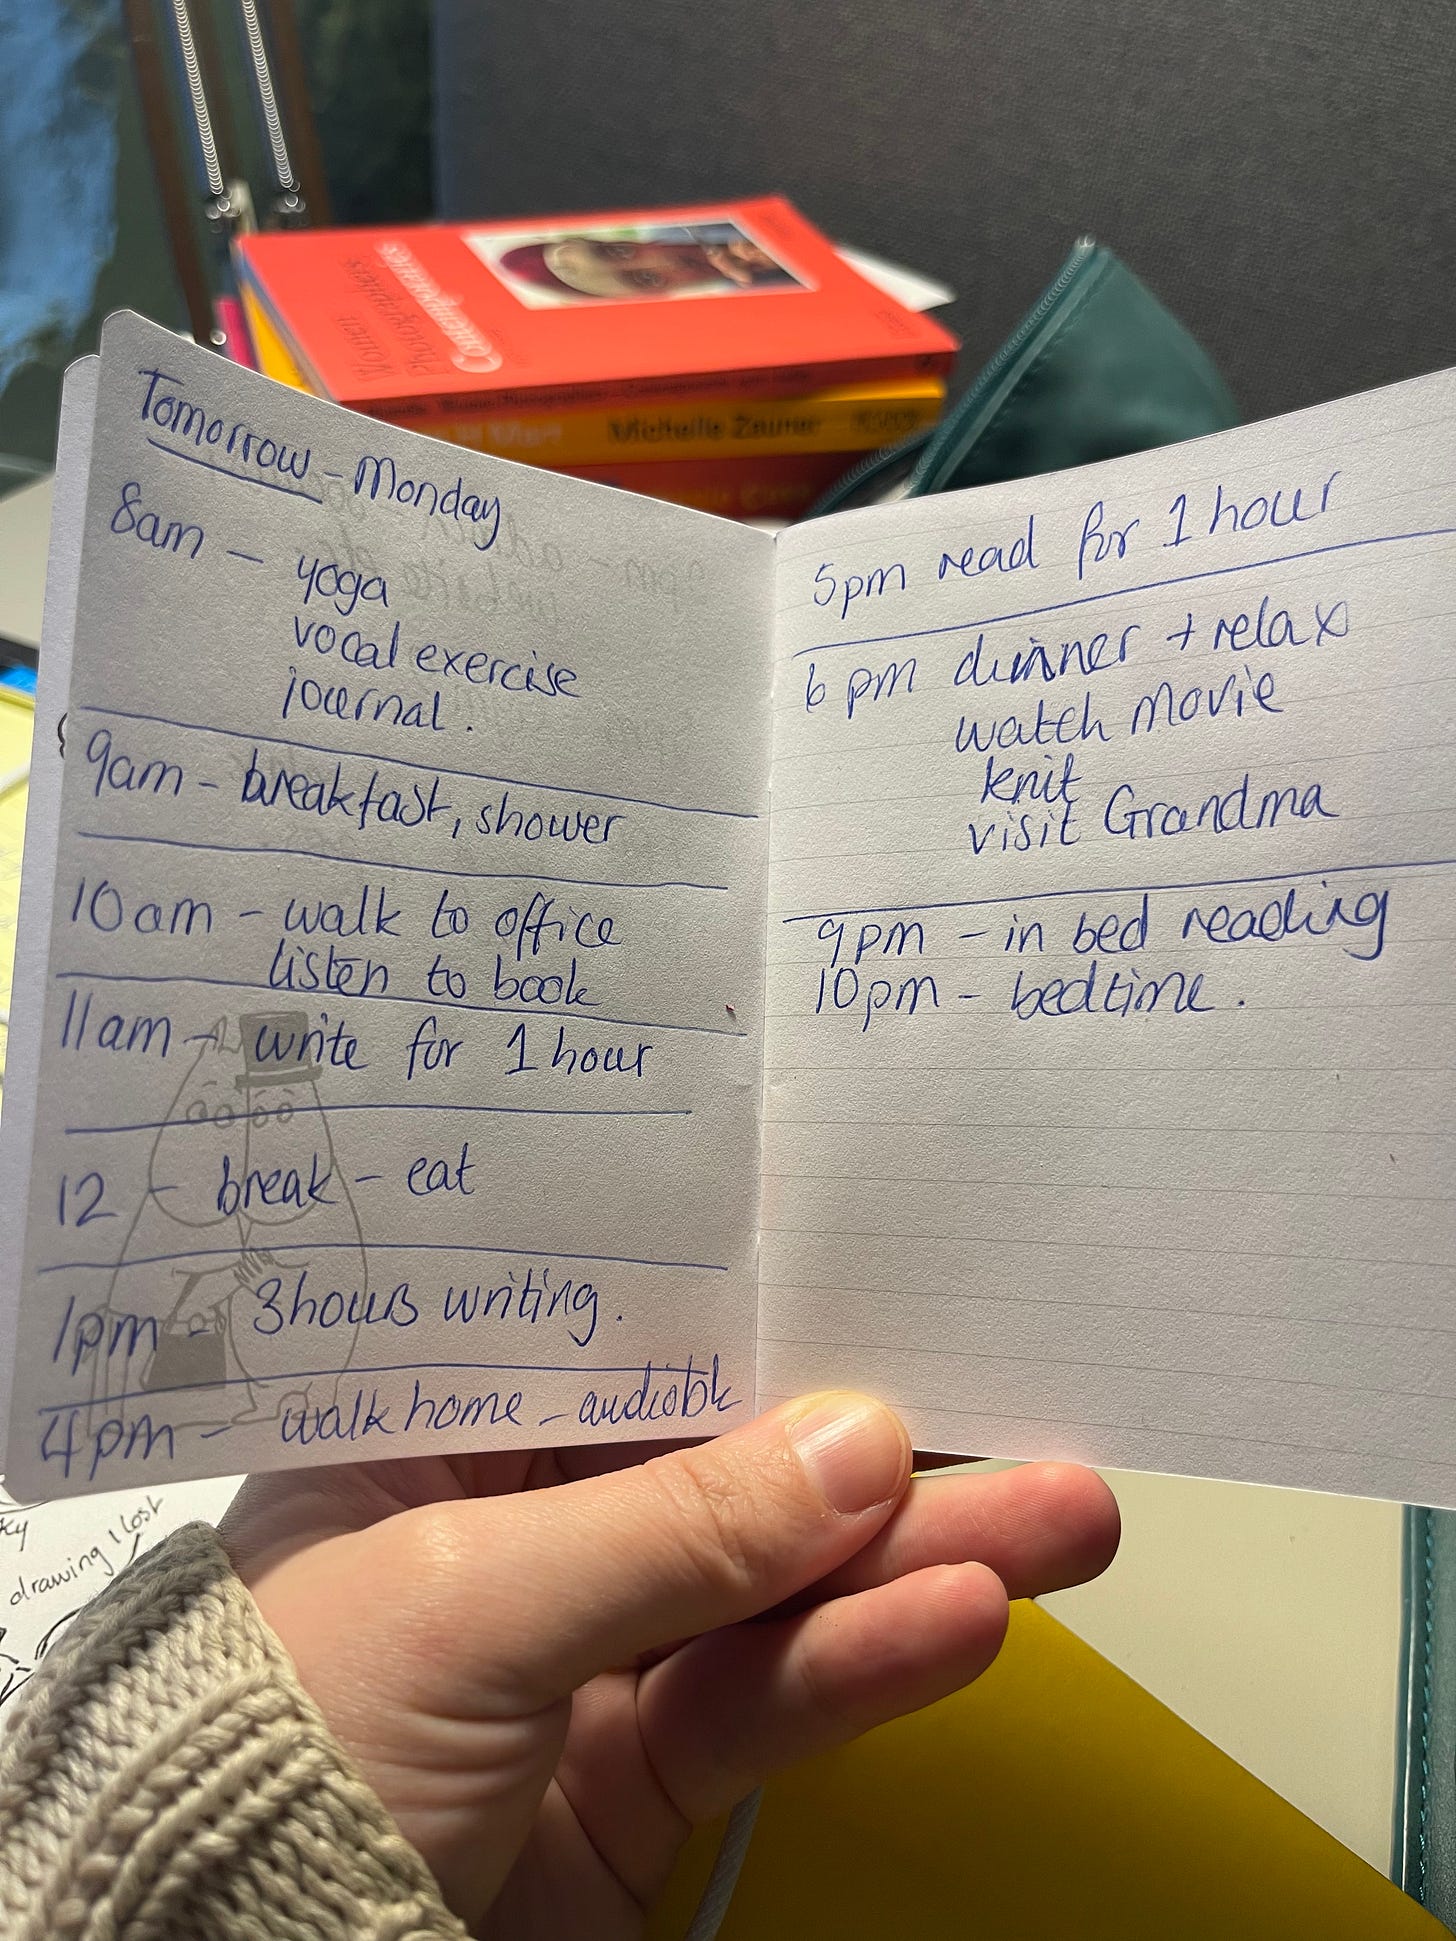 Tomorrow - Monday
8am - yoga
vocal exercise
journal.
9am - breakfast, shower
10am - walk to office
listen to book
11am - write for 1 hour
12 - break - eat
1pm - 3 hours writing.
4pm - walk home - audiobk
5pm read for 1 hour
6pm dinner + relax
watch movie
knit
visit Grandma
9pm - in bed reading
10pm - bedtime.
Women
Photographers
Contemporaries
Michelle Zauner
drawing I lost